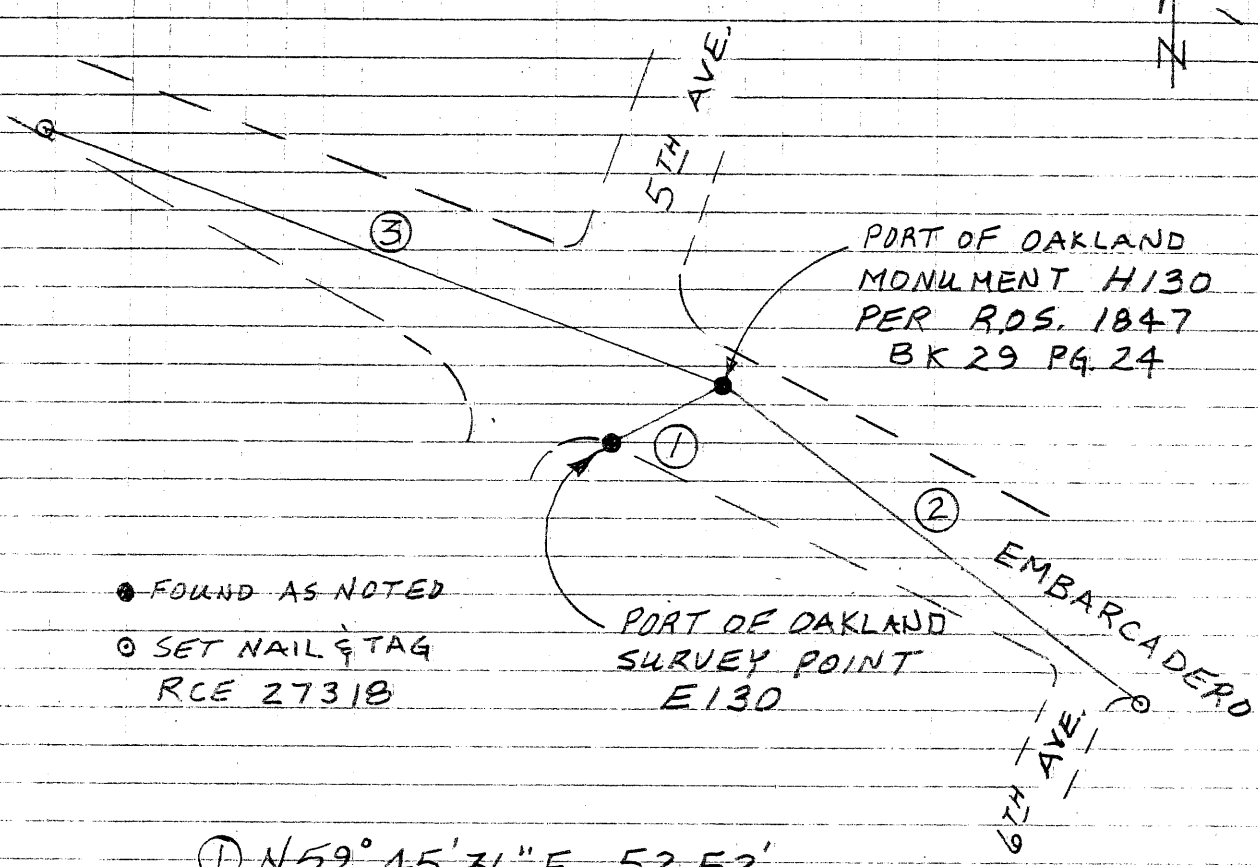 N
5TH AVE.
③
PORT OF OAKLAND
MONUMENT H130
PER R.O.S. 1847
BK 29 PG. 24
①
②
EMBARCADERO
● FOUND AS NOTED
⊙ SET NAIL & TAG
RCE 27318
PORT OF OAKLAND
SURVEY POINT
E130
6TH AVE.
① N59° 52.52'